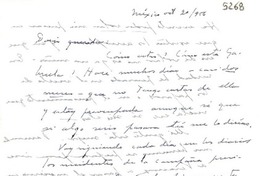 5268
México oct 20/956
Doris querida:
Como estás! Como está Ga-
briela! Hace muchos días - casi dos
meses - que no tengo cartas de ella
y estoy preocupada aunque sé que
si algo serio pasara tú me lo dirías.
Voy siguiendo cada día en los diarios
los incidentes de la campaña presi-